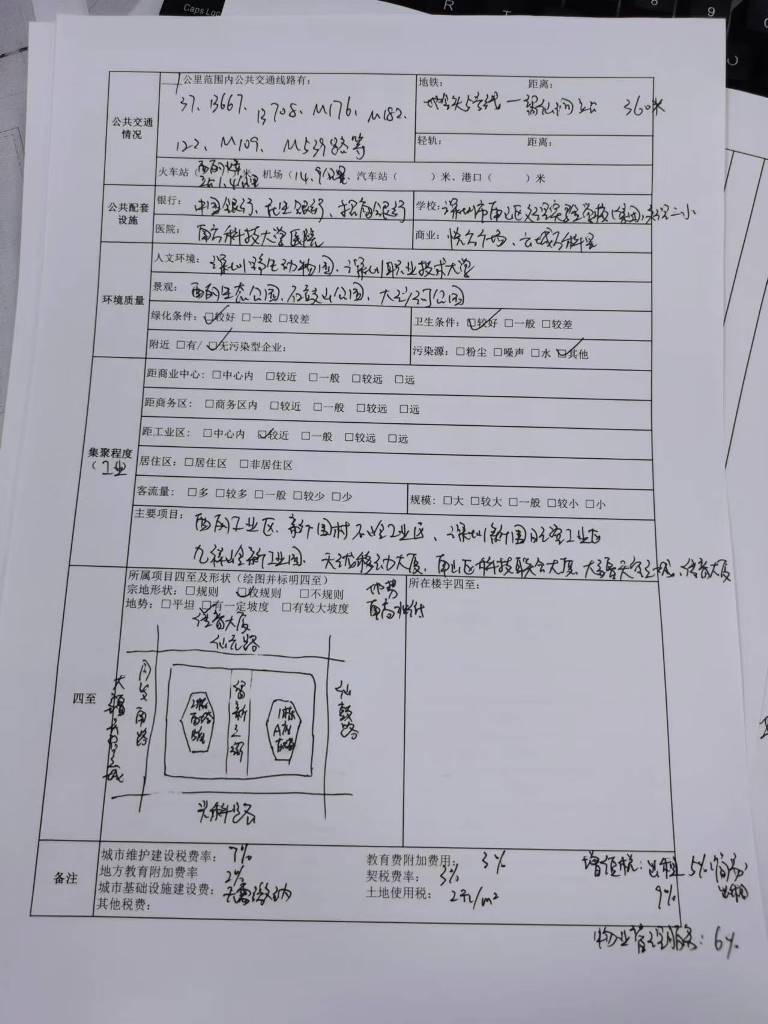 Caps Loc
公共交通
情况
1公里范围内公共交通线路有:
37、B667、B708、M176、M182、
122、M109、M539路等
地铁: 距离:
地铁5号线 360米
轻轨: 距离:
火车站( )米、机场(14.9公里、汽车站( )米、港口( )米
公共配套
设施
银行: 中国银行、民生银行、招商银行
学校: 深圳市南山区 实验学校(集团)
医院: 南方科技大学医院
商业:
环境质量
人文环境: 深圳野生动物园、深圳职业技术大学
景观: 西丽生态公园、石鼓山公园、大沙河公园
绿化条件: ☑较好 □一般 □较差
卫生条件: ☑较好 □一般 □较差
附近 □有/☑无污染型企业:
污染源: □粉尘 □噪声 □水 ☑其他
集聚程度
(工业
距商业中心: □中心内 □较近 □一般 □较远 □远
距商务区: □商务区内 □较近 □一般 □较远 □远
距工业区: □中心内 ☑较近 □一般 □较远 □远
居住区: □居住区 □非居住区
客流量: □多 □较多 □一般 □较少 □少
规模: □大 □较大 □一般 □较小 □小
主要项目: 西丽工业区、新围村石岭工业区、深圳新围 工业区
九祥岭新工业园、天珑移动大厦、南山区科技联合大厦、 信首大厦
四至
所属项目四至及形状(绘图并标明四至)
宗地形状: □规则 ☑较规则 □不规则
地势: □平坦 ☑有一定坡度 □有较大坡度
地势
南高北低
所在楼宇四至:
大厦
仙元路
同发南路
留新三街
仙鼓路
兴科路
备注
城市维护建设税费率: 7%
教育费附加费用: 3%
增值税: 出租 5%(简易)
地方教育附加费率 2%
契税费率: 3%
9% 出租
城市基础设施建设费: 无需缴纳
土地使用税: 2元/m²
其他税费:
物业管理服务: 6%